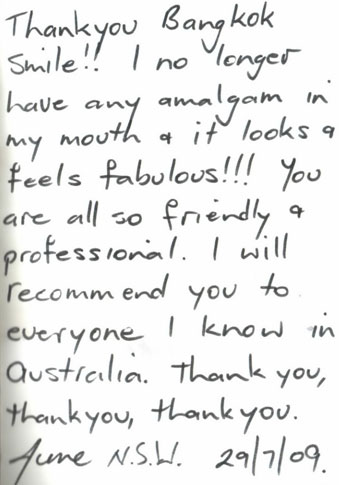 Thankyou Bangkok
Smile!! I no longer
have any amalgam in
my mouth & it looks &
feels fabulous!!! You
are all so friendly &
professional. I will
recommend you to
everyone I know in
Australia. Thank you,
thankyou, thankyou.
June N.S.W. 29/7/09.